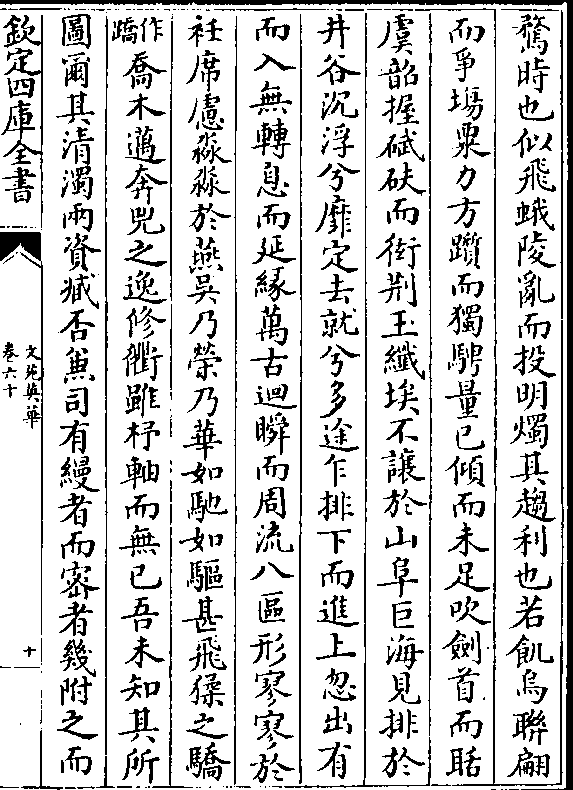 騖時也似飛蛾陵亂而投明燭其趨利也若飢烏聯翩
而爭場粟力方躓而獨騁量已傾而未足吹劍首而聒
虞韶握碔砆而衒荆玉纖埃不讓於山阜巨海見排於
井谷沉浮兮靡定去就兮多途乍排下而進上忽出有
而入無轉息而延緣萬古迴瞬而周流八區形寥寥於
衽席慮淼淼於燕吳乃榮乃華如馳如驅甚飛猱之驕
作蹻喬木邁奔兕之逸修衢雖杼軸而無已吾未知其所
圖爾其清濁兩資臧否兼司有縵者而密者幾附之而
欽定四庫全書
文苑英華
卷六十
十